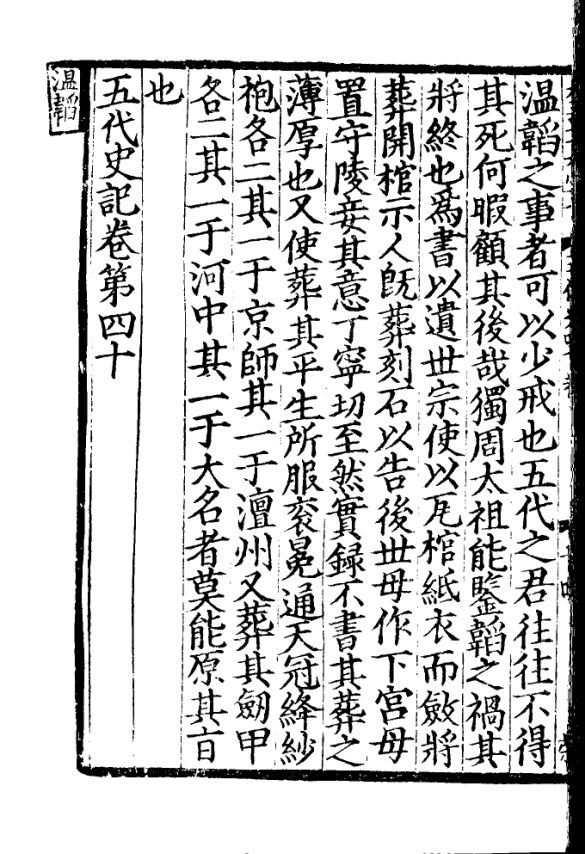 温韜之事者可以少戒也五代之君往往不得
其死何暇顧其後哉獨周太祖能鑒韜之禍其
將終也為書以遺世宗使以瓦棺紙衣而斂將
葬開棺示人既葬刻石以告後世毋作下宮毋
置守陵妾其意丁寧切至然實録不書其葬之
薄厚也又使葬其平生所服衮冕通天冠絳紗
袍各二其一于京師其一于澶州又葬其劒甲
各二其一于河中其一于大名者莫能原其旨
也
五代史記卷第四十
温韜